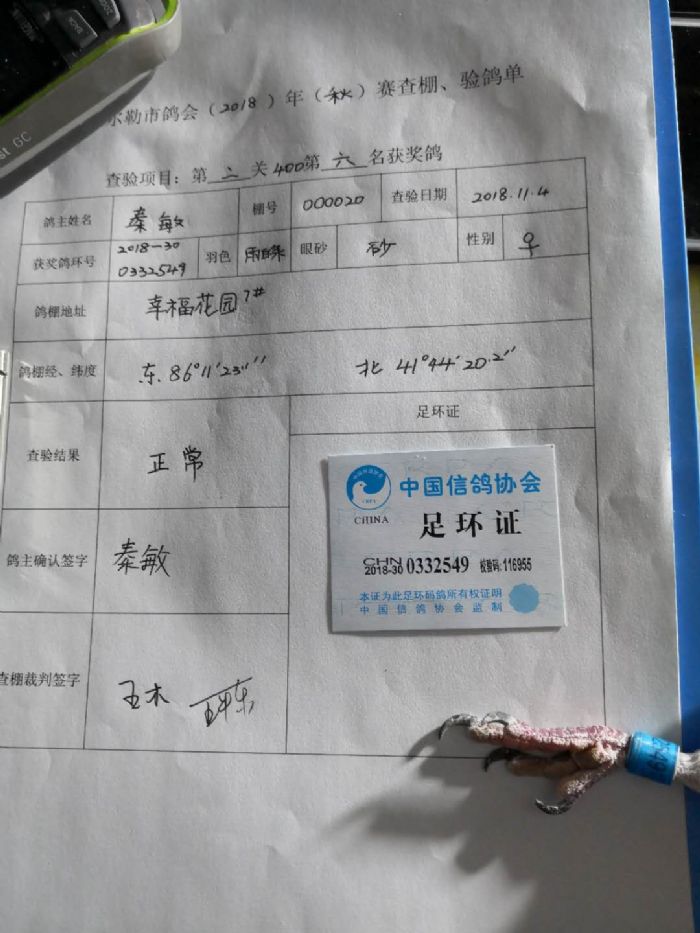 尔勒市鸽会（2018）年（秋）赛查棚、验鸽单
查验项目：第 二 关400第 六 名获奖鸽
鸽主姓名 秦敏 棚号 000020 查验日期 2018.11.4
获奖鸽环号 2018-30 0332549 羽色 雨白条 眼砂 砂 性别 ♀
鸽棚地址 幸福花园7#
鸽棚经、纬度 东.86°11′23″ 北 41°44′20.2″
足环证
查验结果 正常
鸽主确认签字 秦敏
查棚裁判签字 王木
中国信鸽协会
CHINA
足环证
CHN
2018-30 0332549 校验码:116955
本证为此足环码鸽所有权证明
中国信鸽协会监制